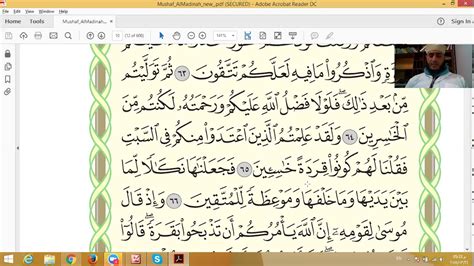 Mushaf_AlMadinah_new_.pdf (SECURED) - Adobe Acrobat Reader DC
Home Tools Mushaf_AlMadinah_n...
ةٍ وَٱذْكُرُوا۟ مَا فِيهِ لَعَلَّكُمْ تَتَّقُونَ ٦٣ ثُمَّ تَوَلَّيْتُم
مِّنۢ بَعْدِ ذَٰلِكَ ۖ فَلَوْلَا فَضْلُ ٱللَّهِ عَلَيْكُمْ وَرَحْمَتُهُۥ لَكُنتُم مِّنَ
ٱلْخَٰسِرِينَ ٦٤ وَلَقَدْ عَلِمْتُمُ ٱلَّذِينَ ٱعْتَدَوْا۟ مِنكُمْ فِى ٱلسَّبْتِ
فَقُلْنَا لَهُمْ كُونُوا۟ قِرَدَةً خَٰسِـِٔينَ ٦٥ فَجَعَلْنَٰهَا نَكَٰلًا لِّمَا
بَيْنَ يَدَيْهَا وَمَا خَلْفَهَا وَمَوْعِظَةً لِّلْمُتَّقِينَ ٦٦ وَإِذْ قَالَ
مُوسَىٰ لِقَوْمِهِۦٓ إِنَّ ٱللَّهَ يَأْمُرُكُمْ أَن تَذْبَحُوا۟ بَقَرَةً ۖ قَالُوٓا۟